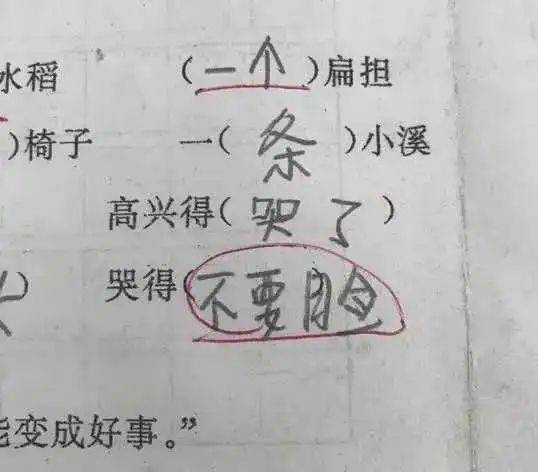 水稻 (一个)扁担
)椅子 一(条)小溪
高兴得(哭了)
) 哭得(不要脸
能变成好事。”